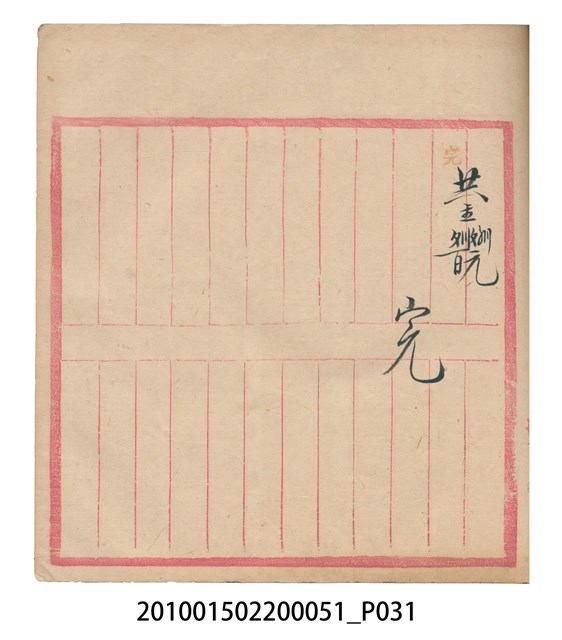 完
共
百元
完
201001502200051_P031